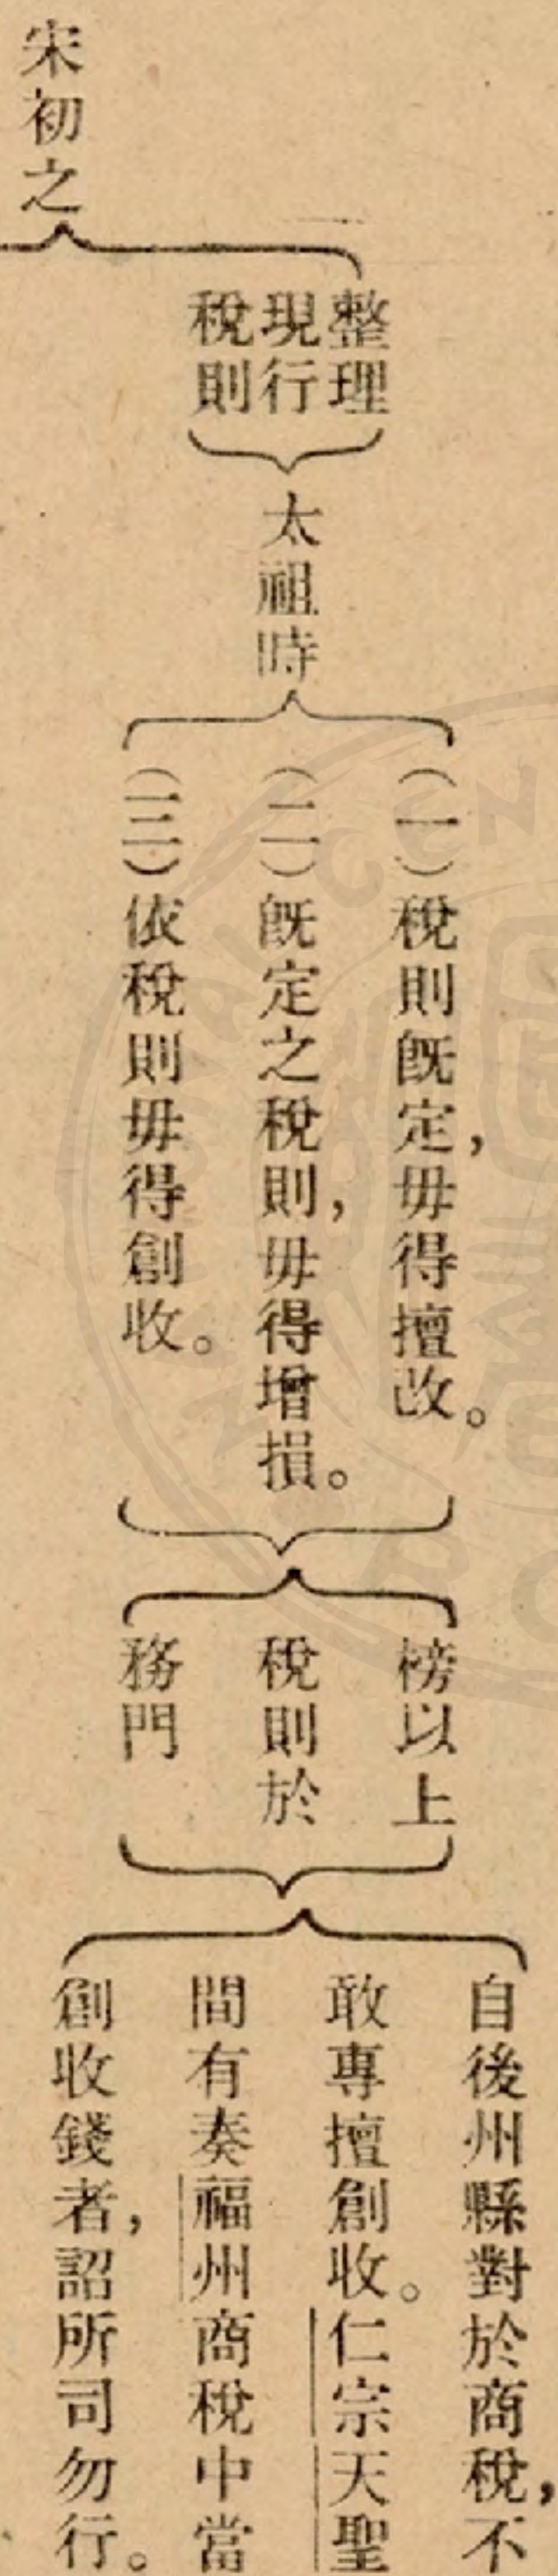 宋初之
整理
現行
稅則
太祖時
(一)稅則旣定,毋得擅改。
(二)旣定之稅則,毋得增損。
(三)依稅則毋得創收。
榜以上
稅則於
務門
自後州縣對於商稅,不
敢專擅創收。仁宗天聖
間有奏福州商稅中當
創收錢者,詔所司勿行。